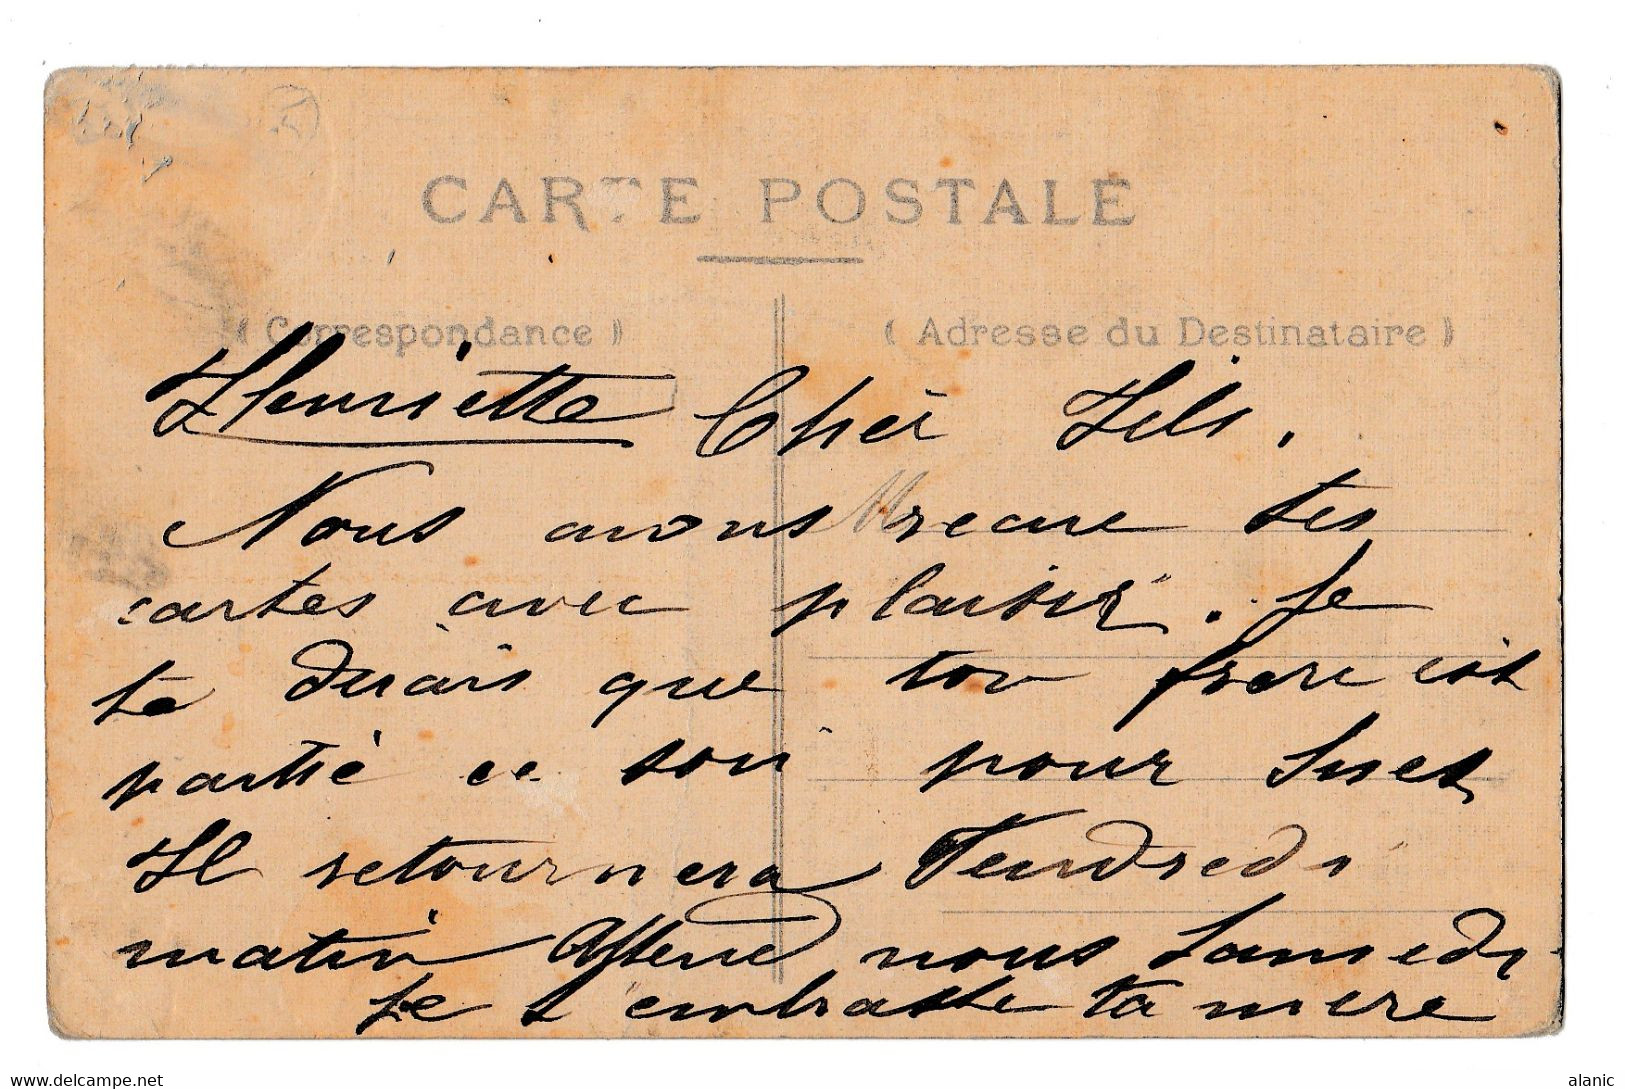 CARTE POSTALE
( Correspondance ) ( Adresse du Destinataire )
Henriette Cher Fils.
Nous avons recue tes
cartes avec plaisir. Je
te dirais que ton frere est
partie ce soir pour Suez
Il retournera Vendredi
matin Attend nous Samedi
Je t embrasse ta mere
www.delcampe.net alanic